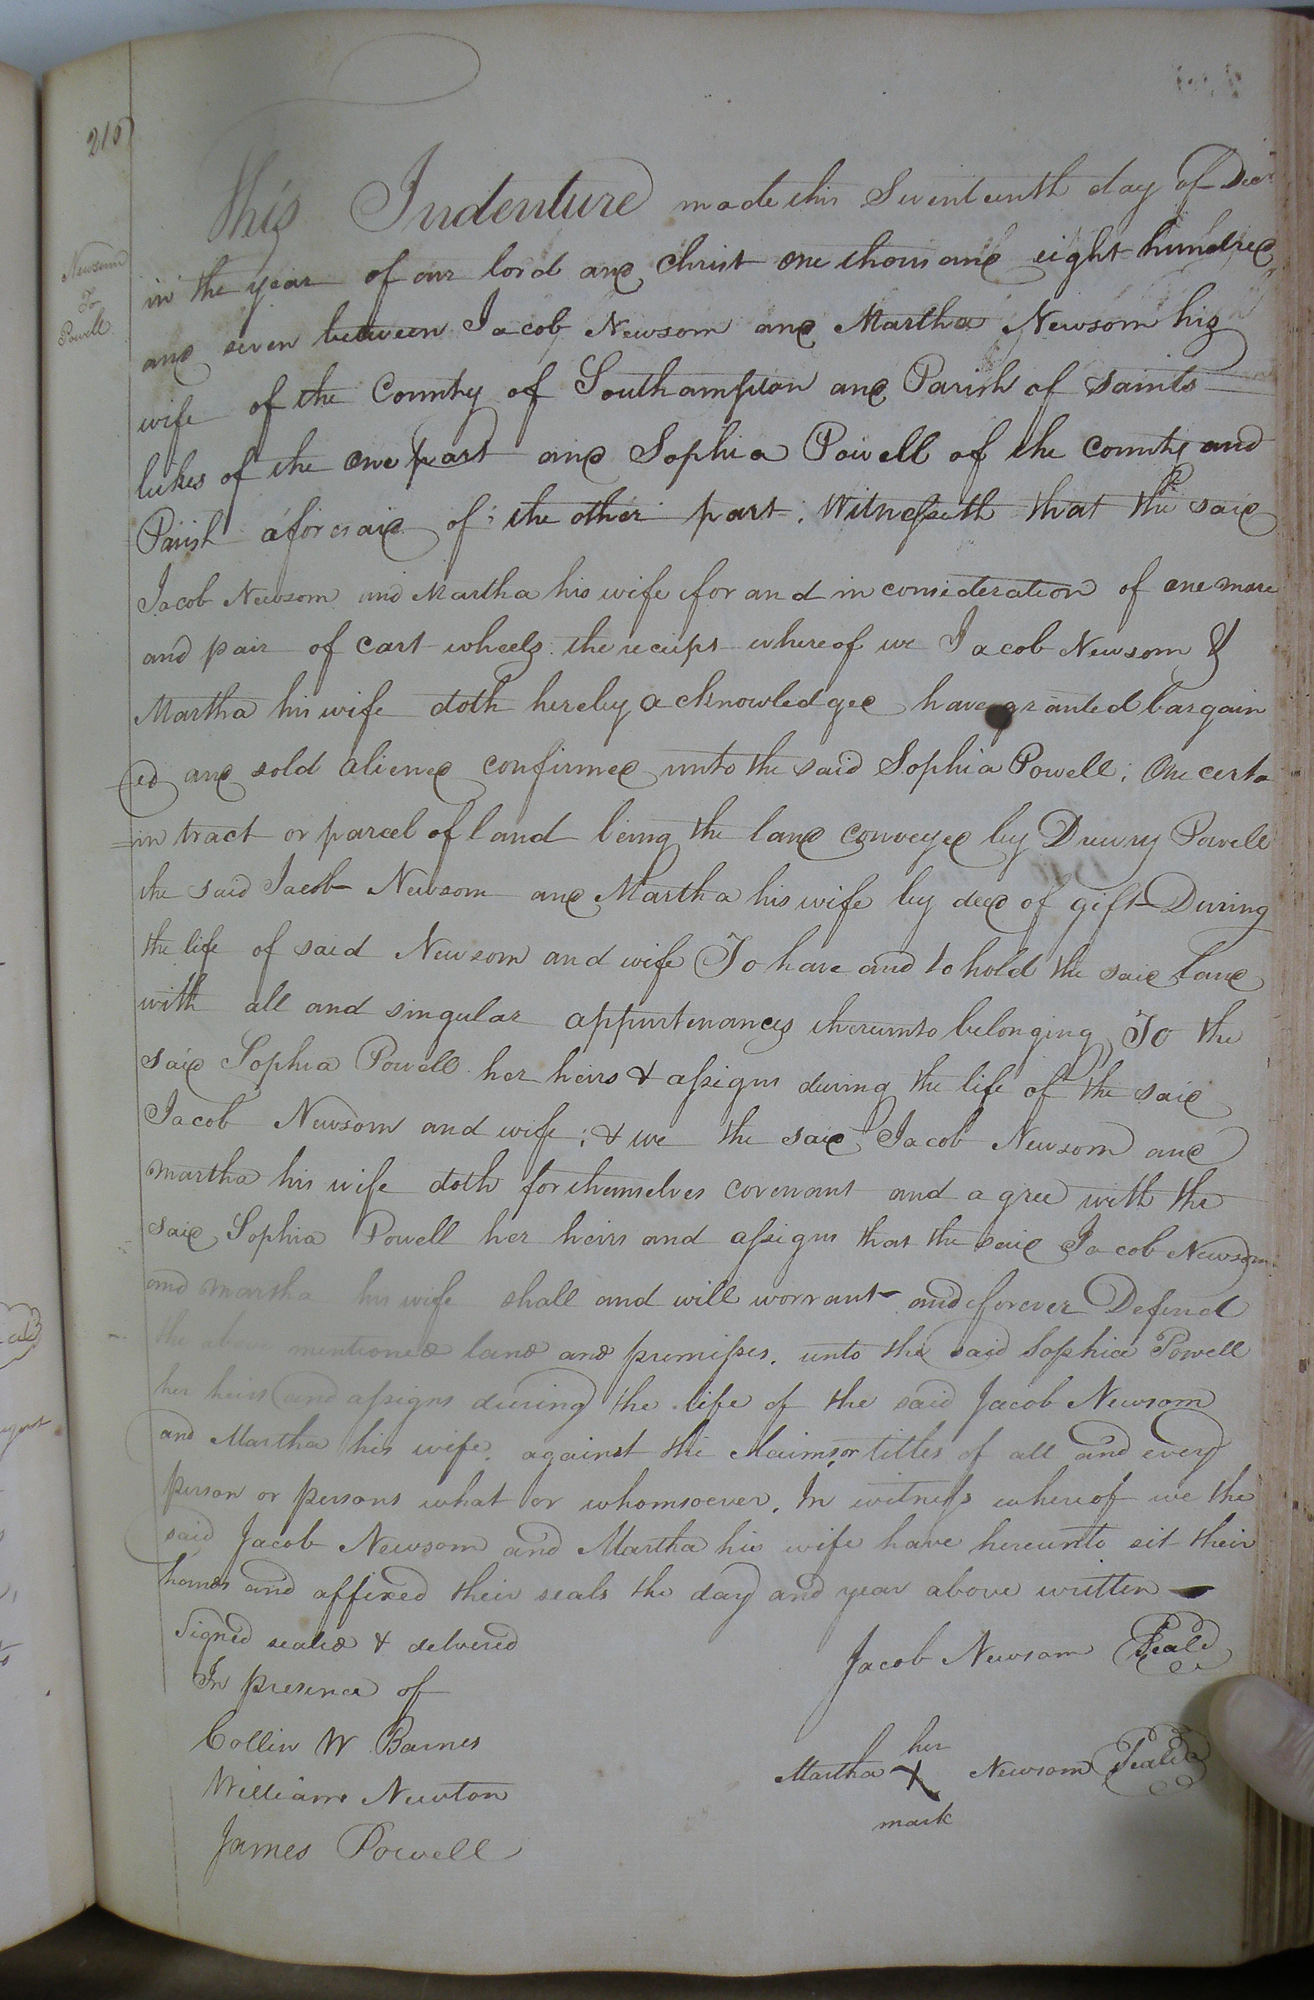 210
Newsom
To
Powell
This Indenture made this Seventeenth day of Decr
in the year of our lord and christ one thousand eight hundred
and seven between Jacob Newsom and Martha Newsom his
wife of the County of Southampton and Parish of Saints
lukes of the one part and Sophia Powell of the county and
Parish aforesaid of the other part. Witnesseth that the said
Jacob Newsom and Martha his wife for and in consideration of one mare
and pair of cart wheels the receipt whereof we Jacob Newsom &
Martha his wife doth hereby acknowledged have granted bargain
ed and sold aliened confirmed unto the said Sophia Powell; One certa
=in tract or parcel of land being the land conveyed by Drewry Powell
the said Jacob Newsom and Martha his wife by deed of gift During
the life of said Newsom and wife To have and to hold the said land
with all and singular appurtenances thereunto belonging To the
said Sophia Powell her heirs & assigns during the life of the said
Jacob Newsom and wife; & we the said Jacob Newsom and
Martha his wife doth for themselves covenant and agree with the
said Sophia Powell her heirs and assigns that the said Jacob Newsom
and Martha his wife shall and will worrant and forever Defend
the above mentioned land and premises. unto the said Sophia Powell
her heirs and assigns during the life of the said Jacob Newsom
and Martha his wife. against the claims or titles of all and every
person or persons what or whomsoever. In witness whereof we the
said Jacob Newsom and Martha his wife have hereunto sit their
hands and affixed their seals the day and year above written
Signed sealed & delivered
In presence of
Jacob Newsom Seald
Collin W Barnes
her
Martha X Newsom Seald
mark
William Newton
James Powell